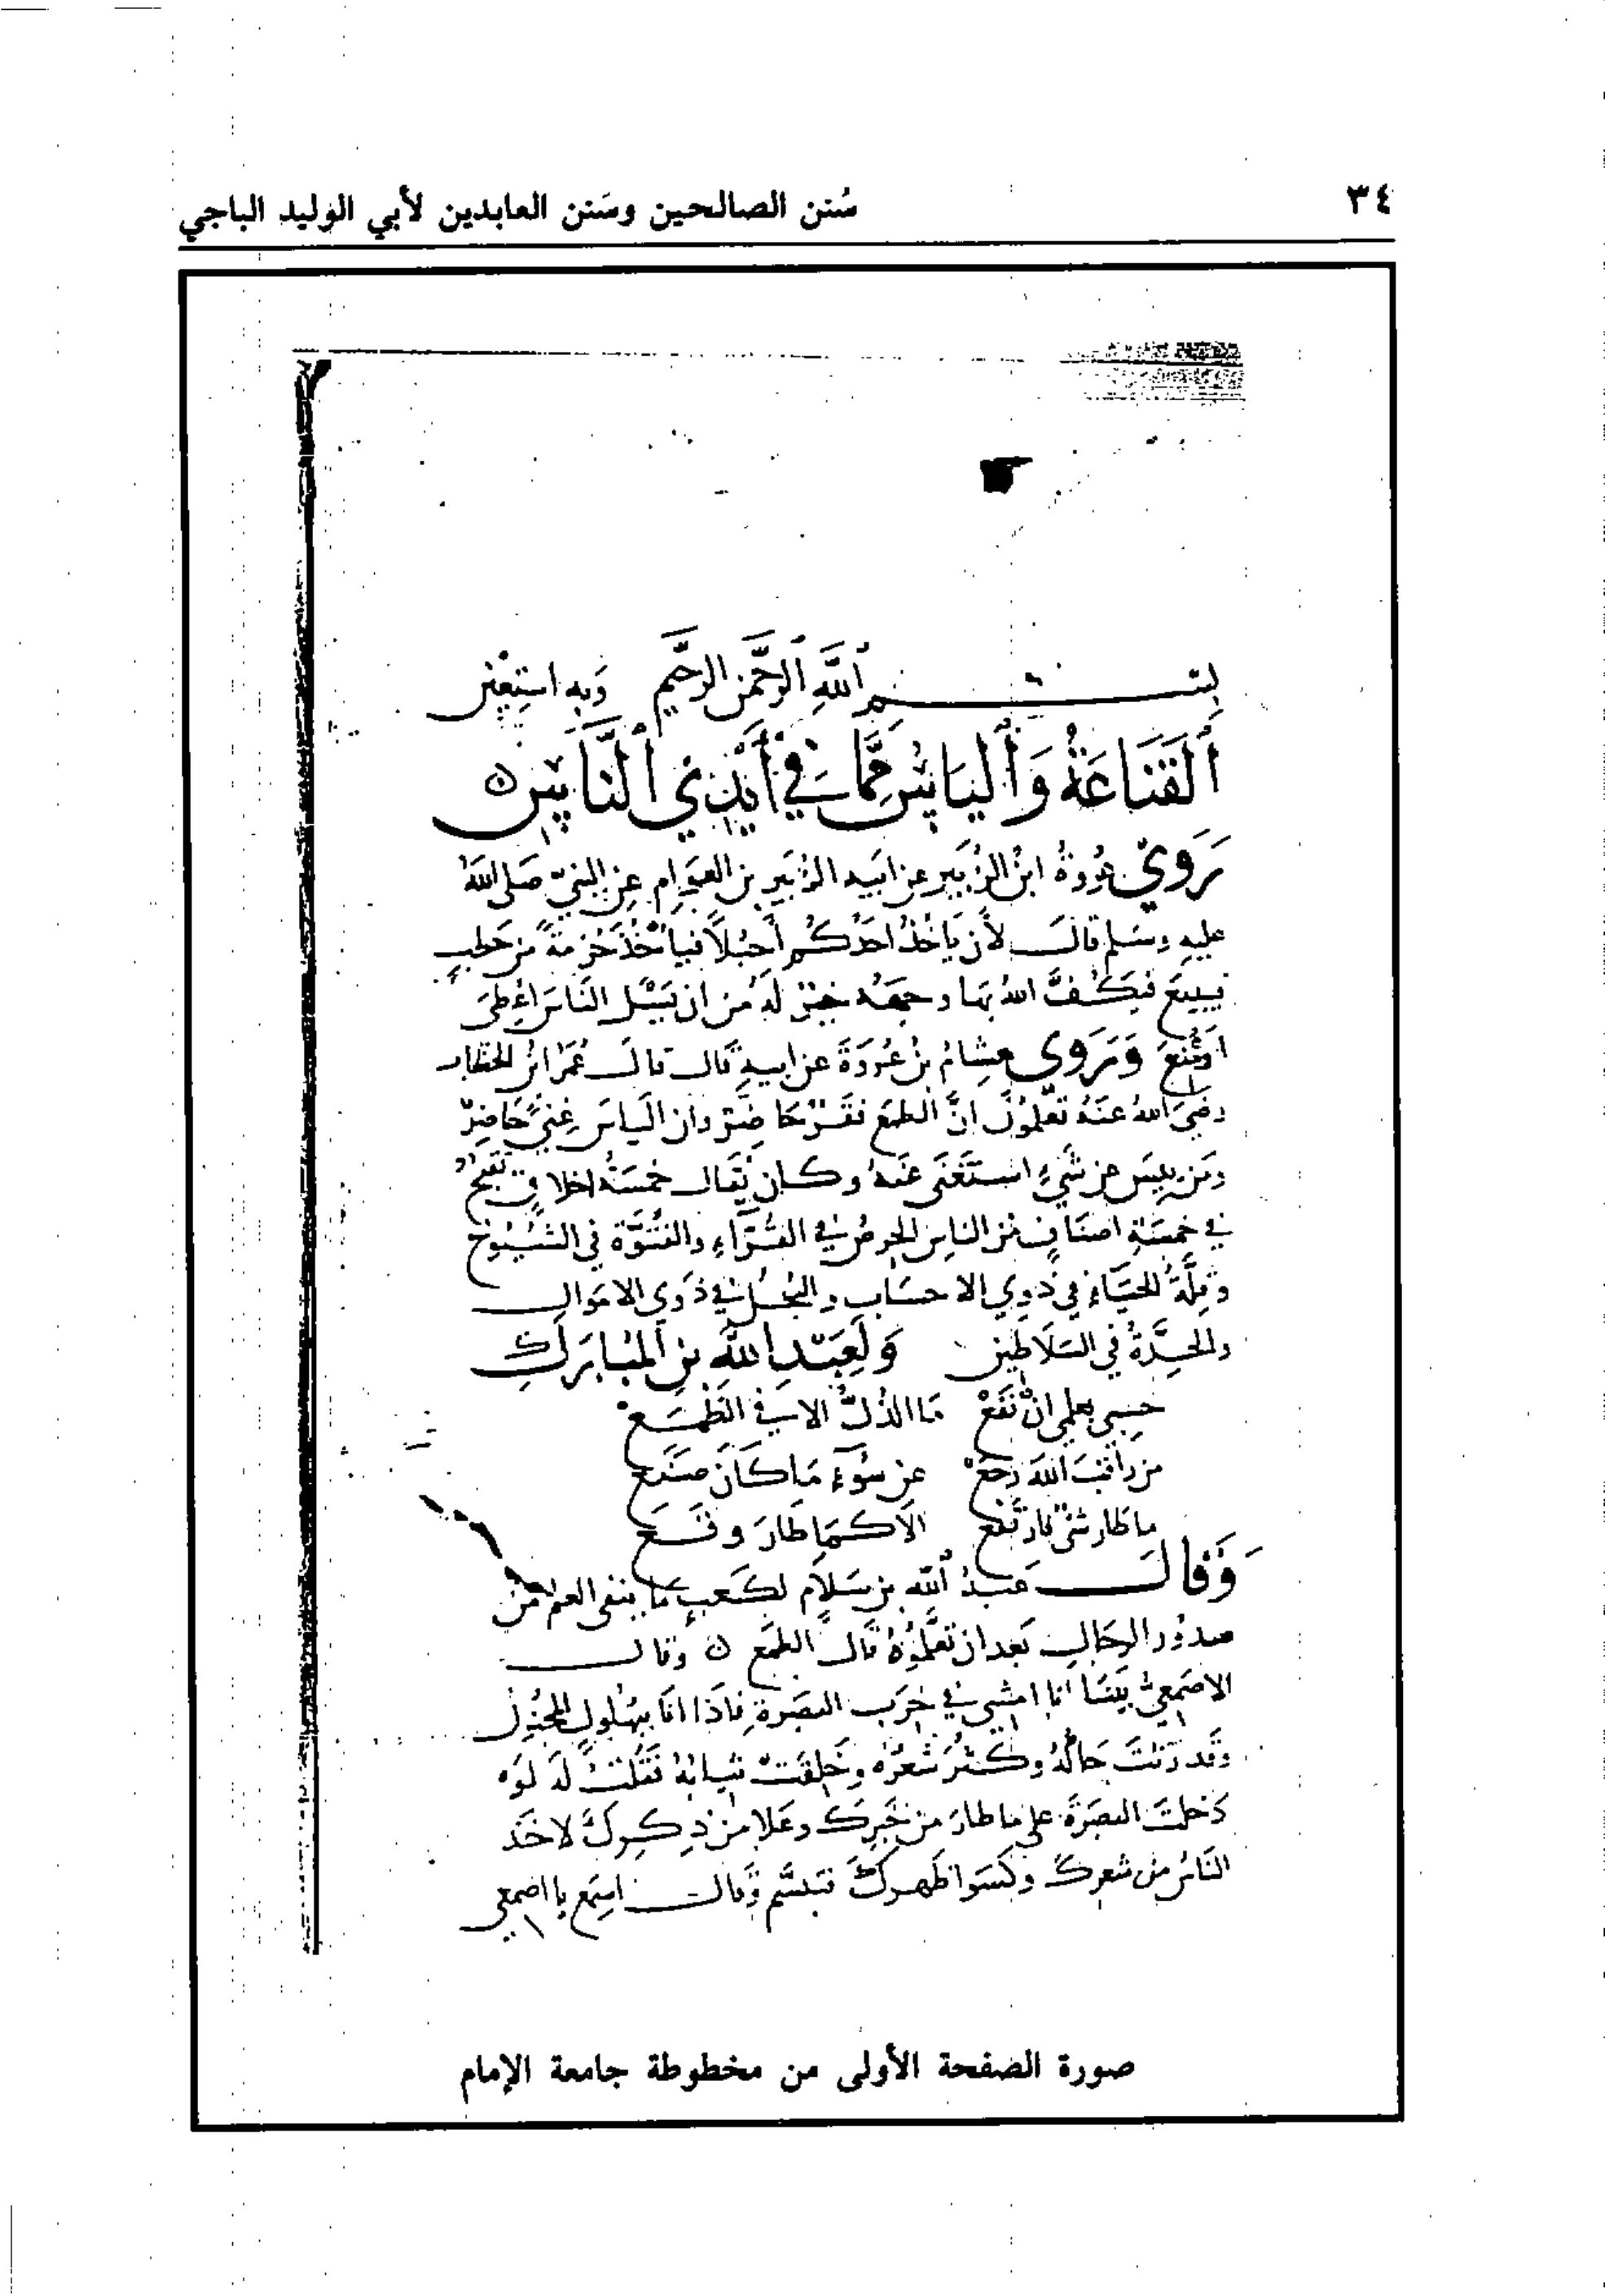 ٣٤
سُنن الصالحين وسَنن العابدين لأبي الوليد الباجي
بسم اللَّه الرَّحمن الرَّحيم وَبه استعين
اَلقَنَاعَةُ وَاليَاسُ مِمَّا في أَيْدِي النَّاسِ
رَوَى عُروةُ ابنُ الزُّبَير عن ابيه الزبَير بن العوام عن النبيّ صَلى اللَّهُ
عليهِ وسَلم قالَ لأن يَاخُذَ احَدُكُم أحبُلاً فيأخُذَ حُزمَةً من حَطبٍ
فيبيعَ فيَكُفَّ اللهُ بهَا وجهَهُ خيرٌ لَهُ من ان يَسْئل النَّاسَ اعْطِىَ
او مُنعَ وَرَوى هشامُ بنُ عُروَةَ عن ابيهِ قال قالَ عُمَر ابن الخطاب
رضيَ اللهُ عنهُ تعْلمُونَ انَّ الطمَع فقرٌ حَاضِرٌ وان اليَاسَ غِنىً حَاضِرٌ
ومَن ييِسَ عن شَيْءٍ استَغنَى عَنهُ وكان يُقال خمسَةُ اخلاقٍ تقبحُ
في خمسَةِ اصنَافٍ من الناس الحِرصُ في القُرَّاءِ والفُتُوَّة في الشُيُوخ
وقِلَّةُ الحَيَاءِ في ذوِي الاحسَابِ والبُخلُ في ذوِي الاموَالِ
والحِدَّةُ في السَلاطين وَلِعَبدِ اللَّهِ بن المُبَارَكِ
حسبي بعلمي انْ نَفَعْ مَا الذلُّ الا في الطمَعْ
من راقبَ اللهَ رجَعْ عن سُوءِ مَا كَانَ صَنَع
ما طار شئٌ فارتَفَع الاَّ كمَا طارَ وقَع
وَقالَ عبدُ اللَّه بن سَلاَم لكَعبٍ ما ينفى العلمَ منْ
صدُور الرجَالِ بَعد ان تعَلَّمُوهُ قالَ الطمَع وقالَ
الاصمعِيُّ بَينَا انا امشي في خِرَب البَصَرة فاذا انَا بِبُهْلول المجنُون
وقَد رَثت حَالُهُ وكثُرَ شَعرُهُ وخَلقَتْ ثيابُهُ فقُلتُ لَهُ لَوْ
دَخلتَ البصرَةَ على ما طارَ من خَبَرِكَ وعَلا من ذِكركَ لاخَذ
النَاسُ من شعرِكَ وكَسَوا ظَهركَ فتبسَّم وقالَ استمع يا اصمعي
صورة الصفحة الأولى من مخطوطة جامعة الإمام